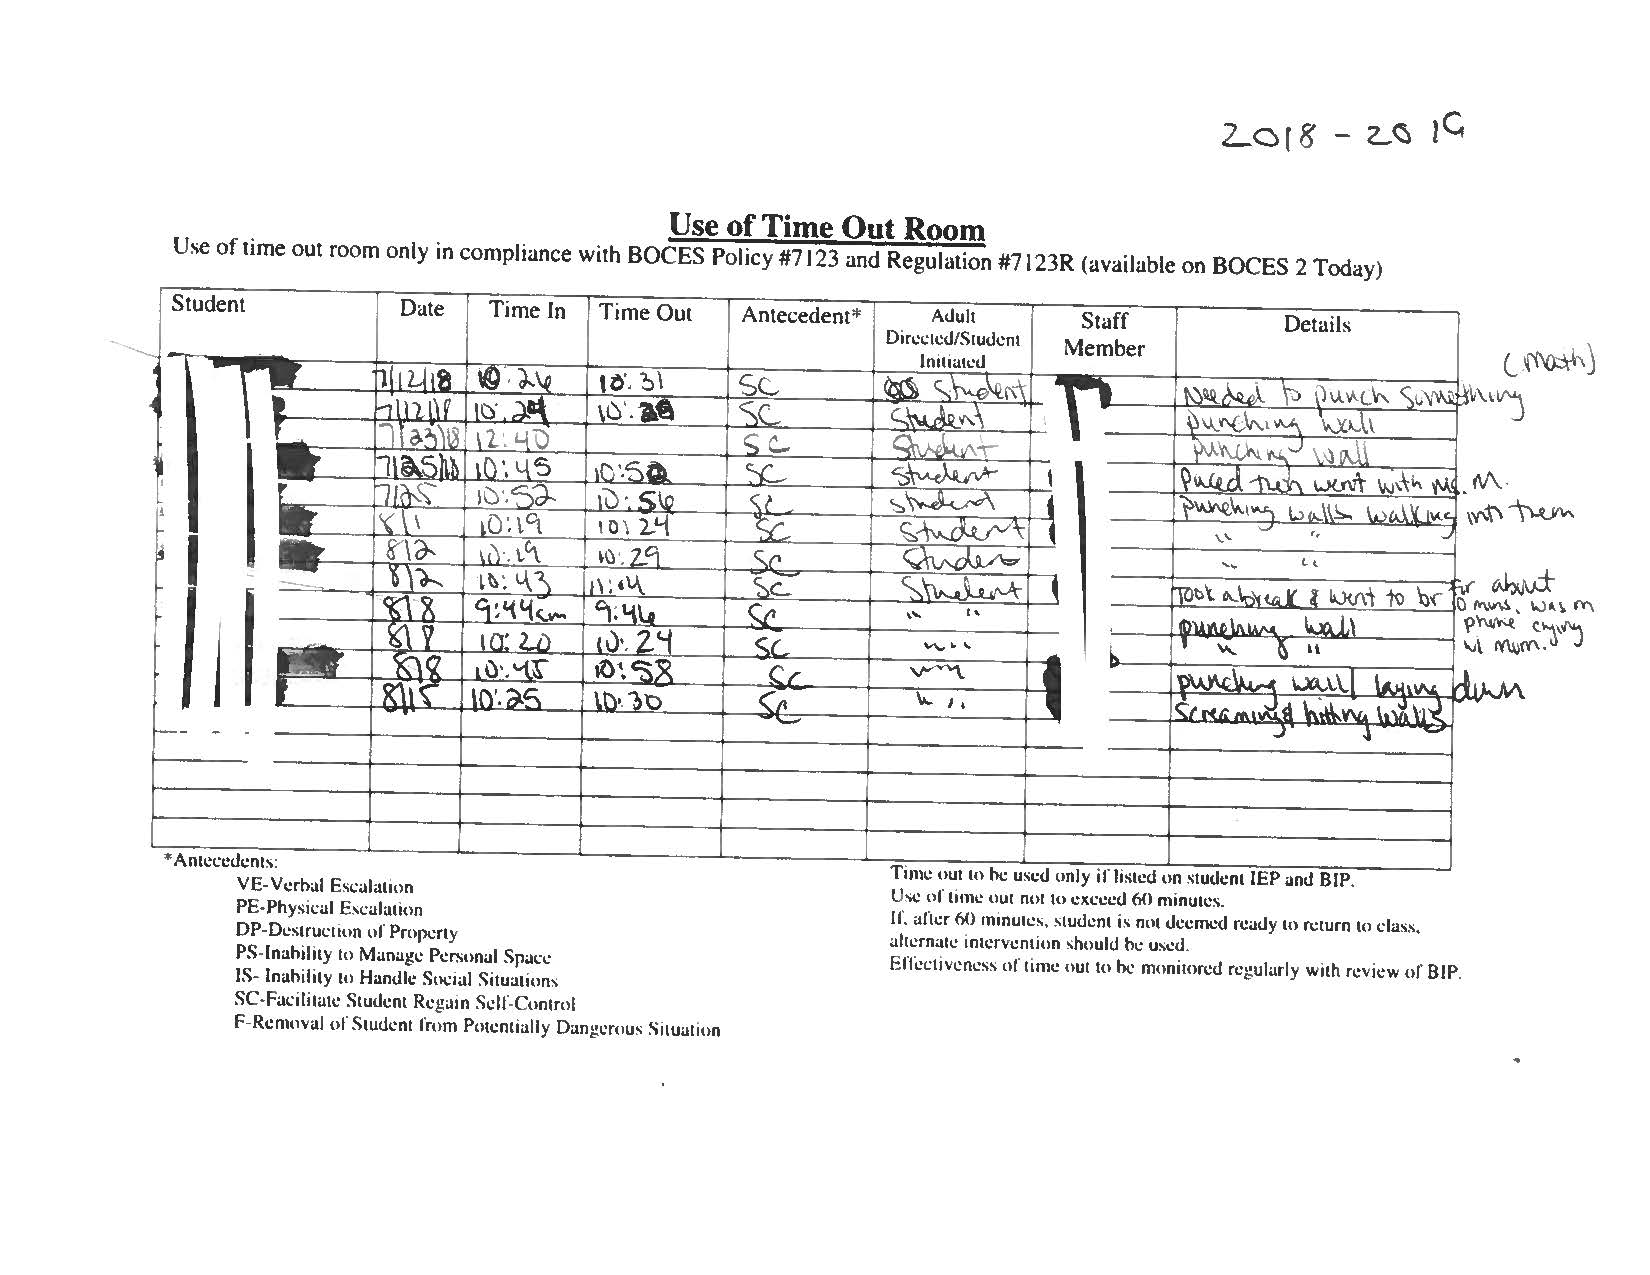 2018 - 2019
Use of Time Out Room
Use of time out room only in compliance with BOCES Policy #7123 and Regulation #7123R (available on BOCES 2 Today)
Student Date Time In Time Out Antecedent* Adult Directed/Student Initiated Staff Member Details
(math)
7/12/18 10:26 10:31 SC Student Needed to punch something
7/12/18 SC Student punching wall
7/23/18 12:40 SC Student punching wall
7/25/18 10:45 10:52 SC Student Paced then went with Ms. M.
7/25 10:52 10:56 SC Student punching walls walking into them
8/1 10:19 10:24 SC Student " "
8/2 10:19 10:29 SC Student " "
8/2 10:43 11:04 SC Student Took a break & went to br for about 10 mins, was on phone crying w/ mom.
8/8 9:44am 9:46 SC " " punching wall
8/8 10:20 10:24 SC " " " "
8/8 10:45 10:58 SC " " punching wall laying down
8/15 10:25 10:30 SC " " Screaming & hitting walls
*Antecedents:
VE-Verbal Escalation
PE-Physical Escalation
DP-Destruction of Property
PS-Inability to Manage Personal Space
IS- Inability to Handle Social Situations
SC-Facilitate Student Regain Self-Control
F-Removal of Student from Potentially Dangerous Situation
Time out to be used only if listed on student IEP and BIP.
Use of time out not to exceed 60 minutes.
If, after 60 minutes, student is not deemed ready to return to class,
alternate intervention should be used.
Effectiveness of time out to be monitored regularly with review of BIP.